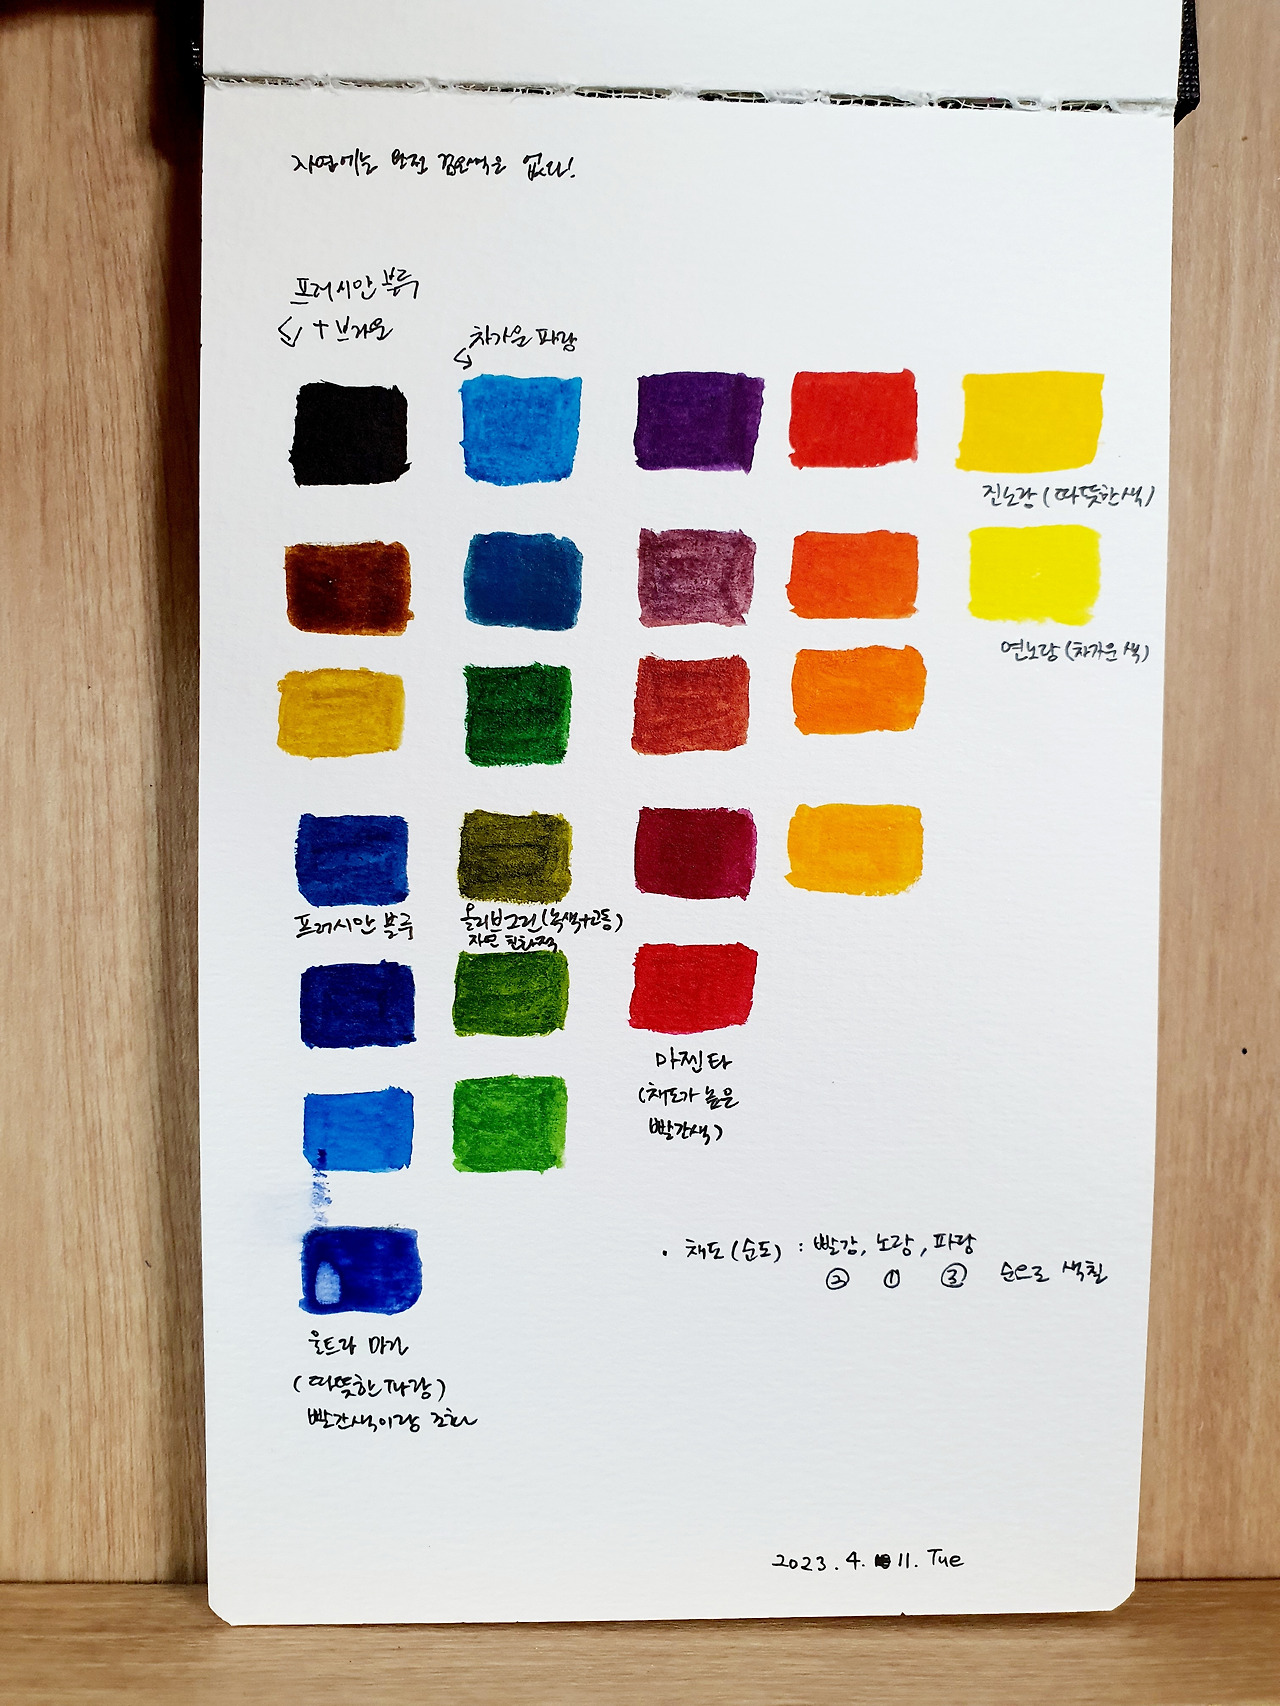 자연에는 완전 검은색은 없다!
프러시안 블루
+ 브라운
차가운 파랑
진노랑 (따뜻한 색)
연노랑 (차가운 색)
프러시안 블루
올리브그린 (녹색+고동)
자연 친화적
마젠타
(채도가 높은
빨간색)
· 채도 (순도) : 빨강, 노랑, 파랑
② ① ③ 순으로 색칠
울트라 마린
(따뜻한 파랑)
빨간색이랑 조화
2023. 4. 11. Tue